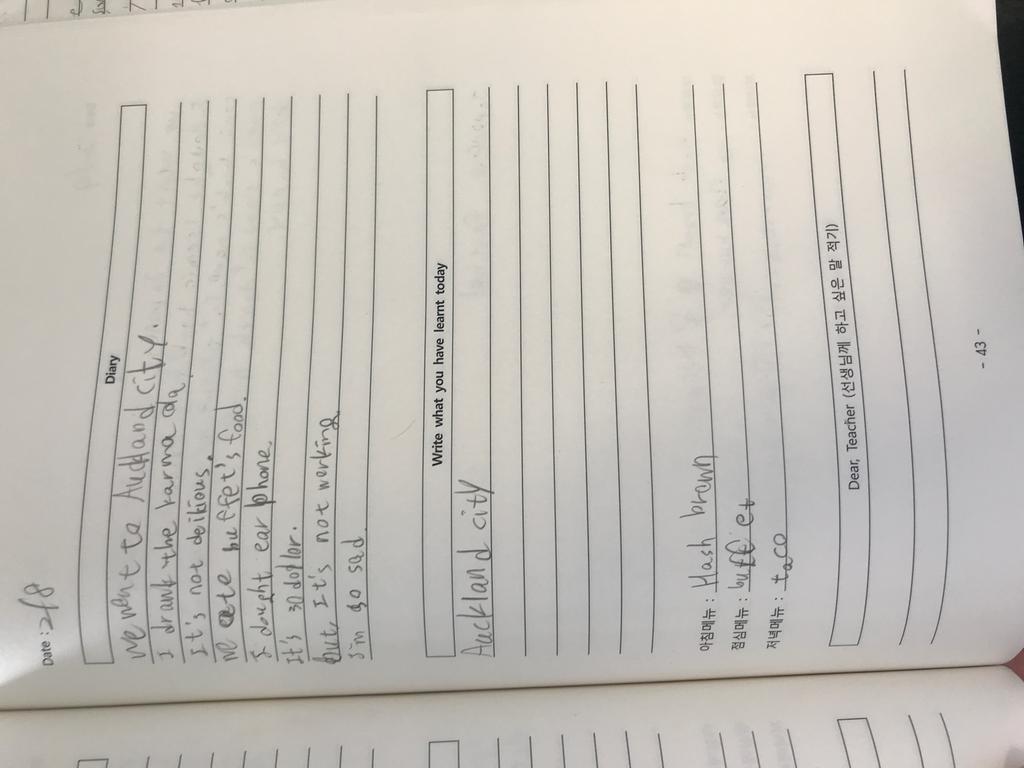 Date : 2/8
Diary
We went to Auckland city.
I drank the karma da
It's not delitious.
we ate buffet's food.
I dought ear phone.
It's 30 dollor.
But, It's not working
I'm so sad.
Write what you have learnt today
Auckland city
아침메뉴 : Hash brown
점심메뉴 : buffet
저녁메뉴 : taco
Dear, Teacher (선생님께 하고 싶은 말 적기)
- 43 -